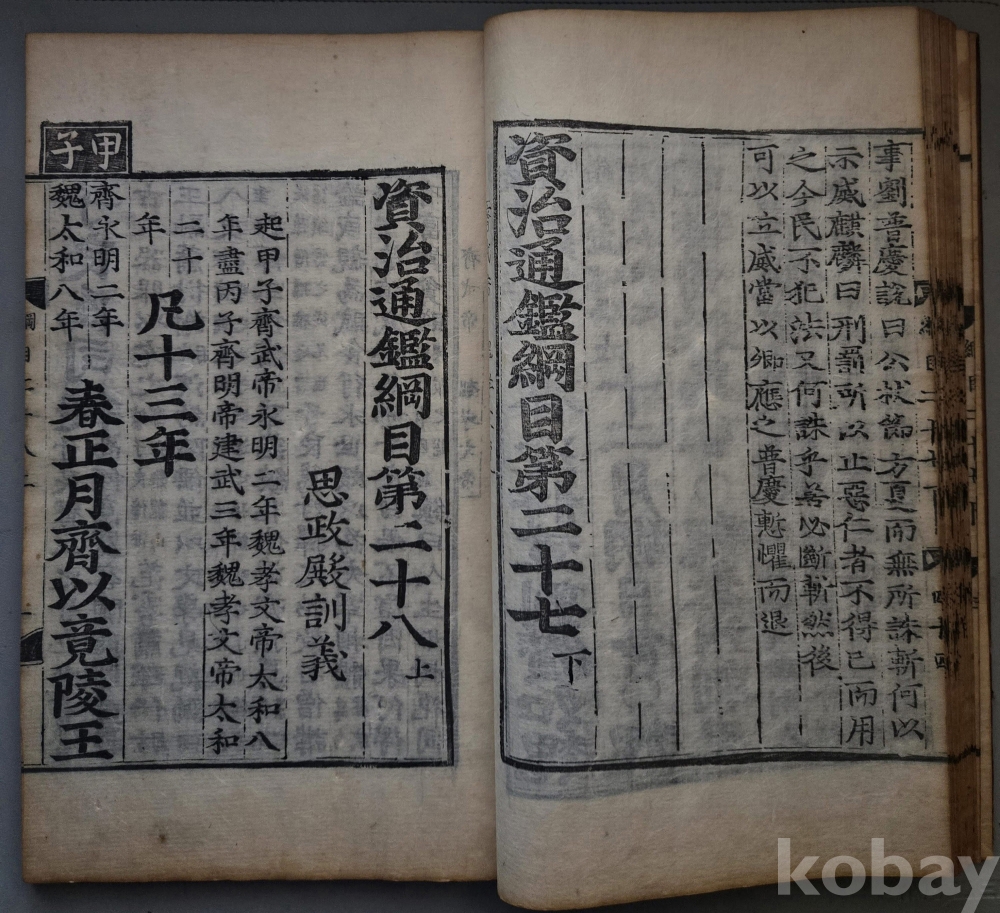 事劉普慶說曰公杖節方夏而無所誅斬何以
示威麒麟曰刑罰所以止惡仁者不得已而用
之今民不犯法又何誅乎若必斷斬然後
可以立威當以卿應之普慶慙懼而退
資治通鑑綱目第二十七下
資治通鑑綱目第二十八上
思政殿訓義
起甲子齊武帝永明二年魏孝文帝太和八
年盡丙子齊明帝建武三年魏孝文帝太和
二十
年
凡十三年
甲子
齊永明二年
魏太和八年
春正月齊以竟陵王
kobay